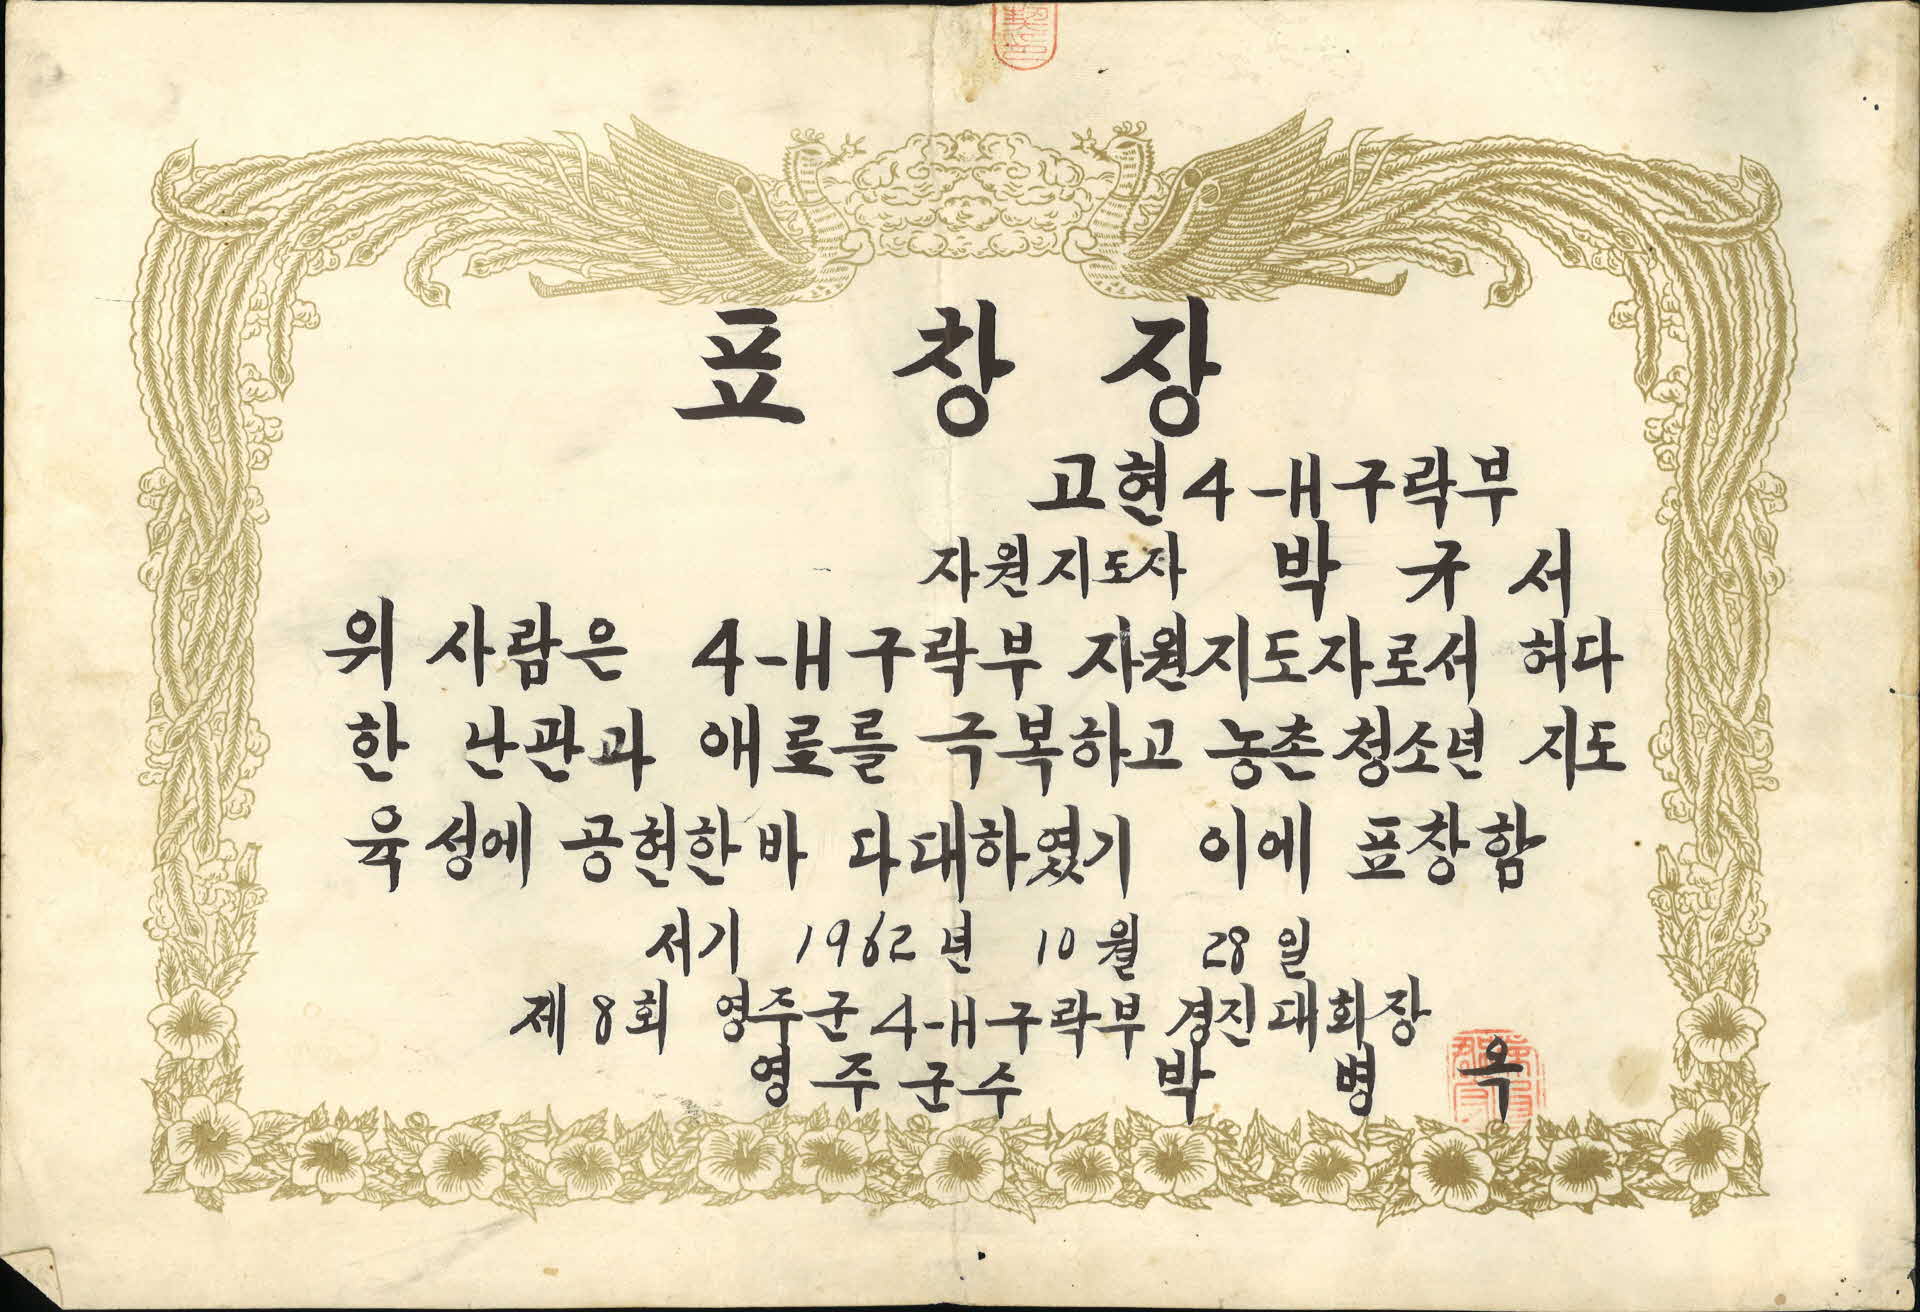 契印
표창장
고현4-H구락부
자원지도자 박규서
위 사람은 4-H구락부 자원지도자로서 허다
한 난관과 애로를 극복하고 농촌청소년 지도
육성에 공헌한바 다대하였기 이에 표창함
서기 1962년 10월 28일
제8회 영주군4-H구락부 경진대회장
영주군수 박병옥